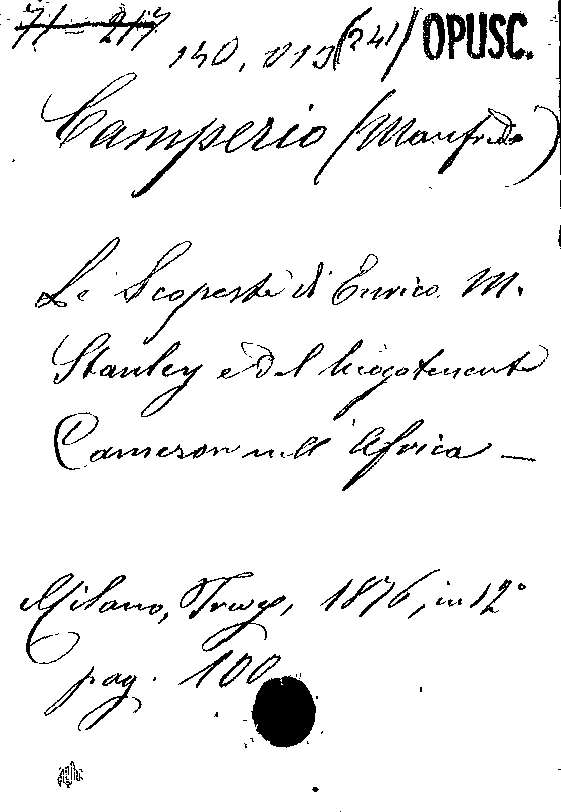 71-217
140,013(241) OPUSC.
Camperio (Manfredo)
Le Scoperte di Enrico M.
Stanley e del luogotenente
Cameron nell'Africa —
Milano, Treves, 1876, in 12°
pag. 100